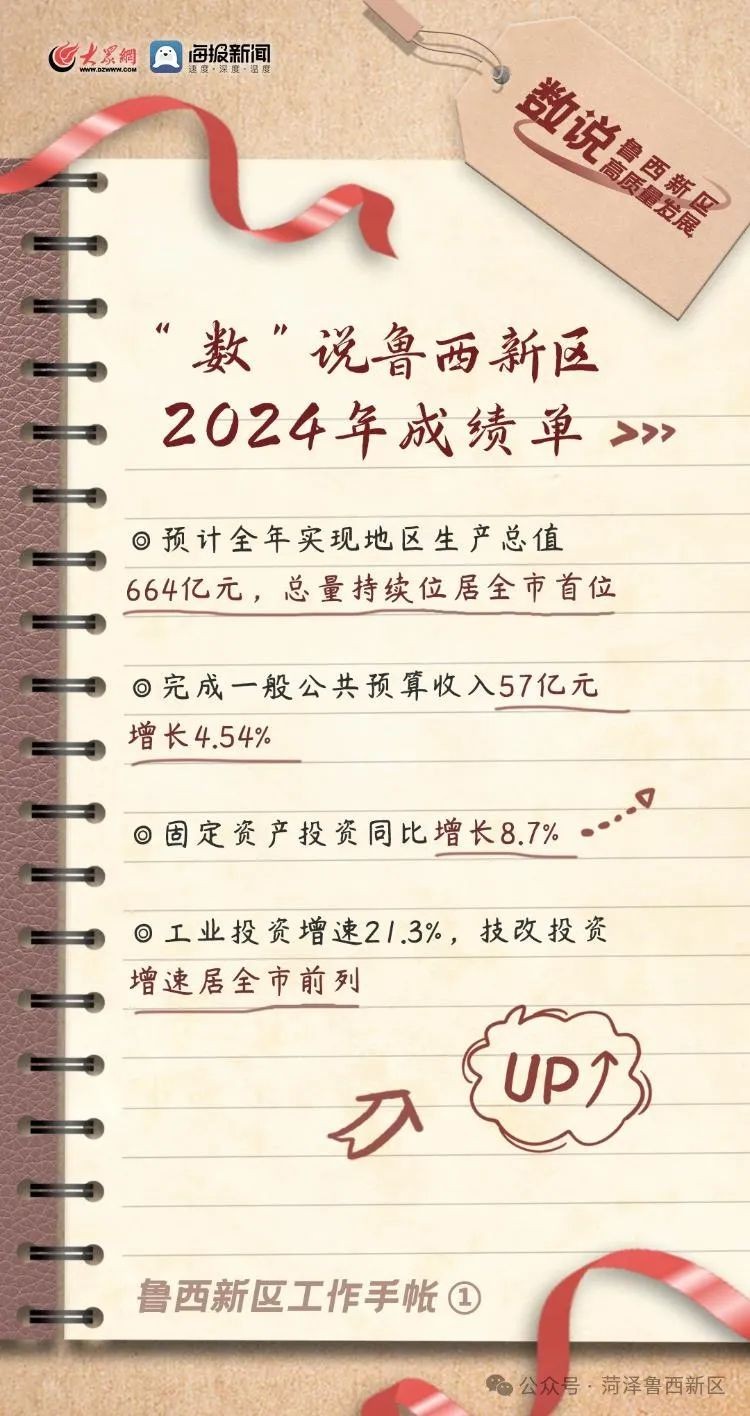 大众網
WWW.DZWWW.COM
海报新闻
速度·深度·温度
数说鲁西新区
高质量发展
“数”说鲁西新区
2024年成绩单 >>>>
◎预计全年实现地区生产总值
664亿元，总量持续位居全市首位
◎完成一般公共预算收入57亿元
增长4.54%
◎固定资产投资同比增长8.7%
◎工业投资增速21.3%，技改投资
增速居全市前列
UP↑
鲁西新区工作手帐①
公众号·菏泽鲁西新区